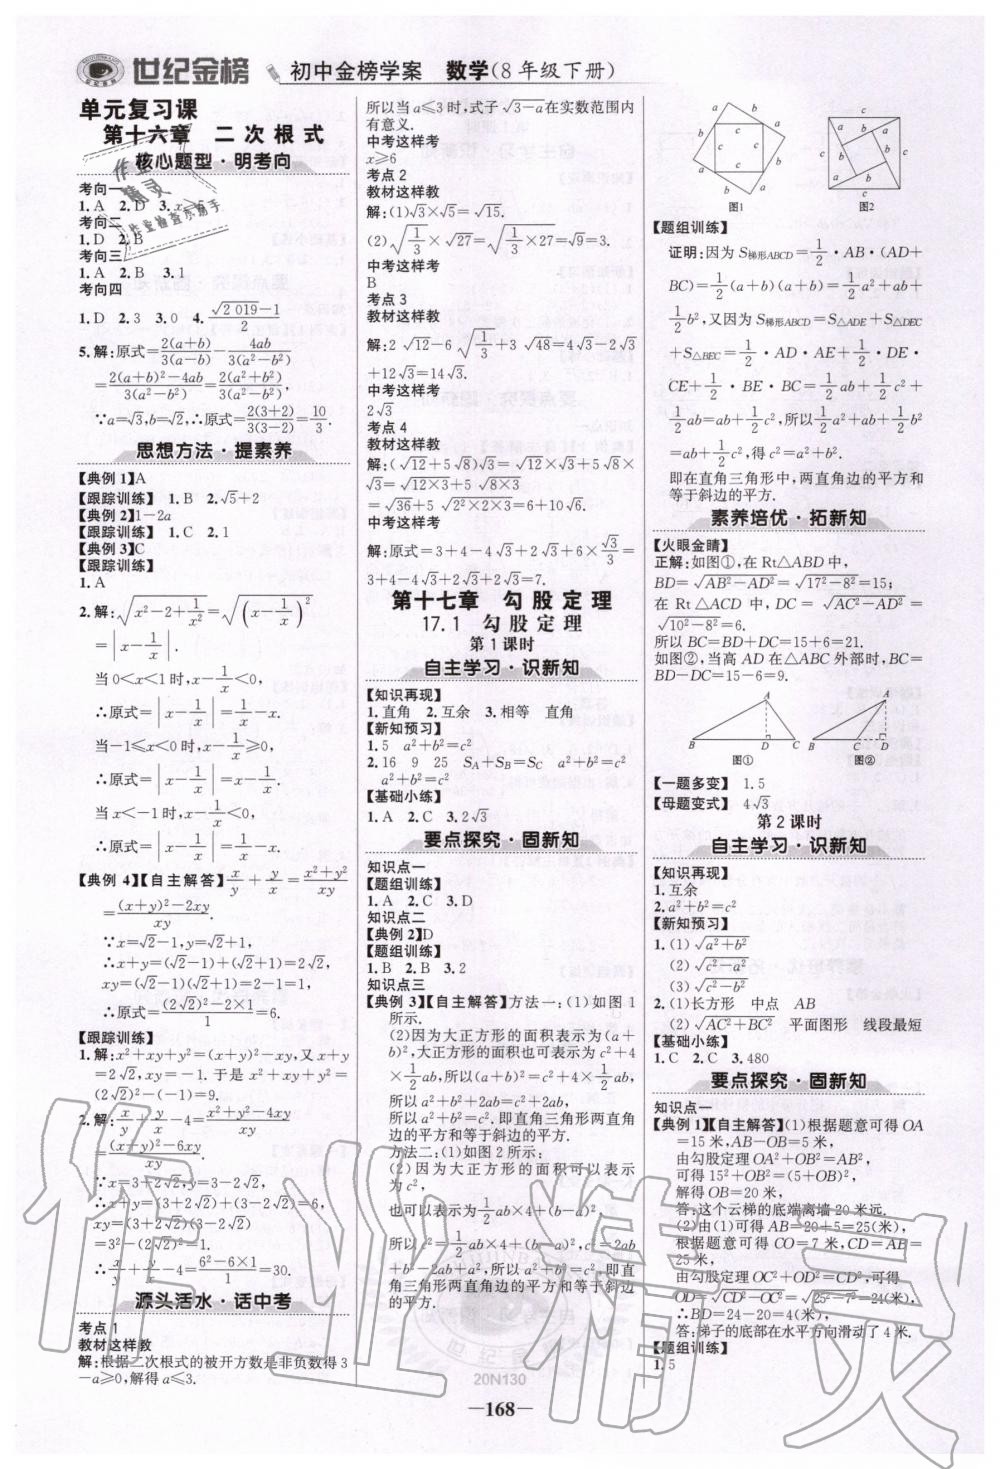 世纪金榜 初中金榜学案 数学(8年级下册)
单元复习课
第十六章 二次根式
核心题型·明考向
考向一
1.A 2.D 3.x≥5
考向二
1.D 2.B
考向三
1.A 2.B 3.1
考向四
1.D 2.3 3.0 4.(√2 019-1)/2
5.解:原式=2(a+b)/3(a-b)-4ab/3(a²-b²)
=(2(a+b)²-4ab)/3(a²-b²)=2(a²+b²)/3(a²-b²),
∵a=√3,b=√2,∴原式=2(3+2)/3(3-2)=10/3.
思想方法·提素养
【典例1】A
【跟踪训练】 1.B 2.√5+2
【典例2】1-2a
【跟踪训练】 1.C 2.1
【典例3】C
【跟踪训练】
1.A
2.解:√(x²-2+1/x²)=√((x-1/x)²)
=|x-1/x|,
当0<x<1时,x-1/x<0,
∴原式=|x-1/x|=1/x-x.
当-1≤x<0时,x-1/x≥0,
∴原式=|x-1/x|=x-1/x.
当x<-1时,x-1/x<0,
∴原式=|x-1/x|=1/x-x.
【典例4】【自主解答】x/y+y/x=(x²+y²)/xy
=((x+y)²-2xy)/xy.
∵x=√2-1,y=√2+1,
∴x+y=(√2-1)+(√2+1)=2√2,
xy=(√2-1)(√2+1)=2-1=1,
∴原式=((2√2)²-2×1)/1=6.
【跟踪训练】
1.解:x²+xy+y²=(x+y)²-xy,又x+y
=2√2,xy=-1.于是x²+xy+y²=
(2√2)²-(-1)=9.
2.解:x/y+y/x-4=(x²+y²-4xy)/xy
=((x+y)²-6xy)/xy.
∵x=3+2√2,y=3-2√2,
∴x+y=(3+2√2)+(3-2√2)=6,
xy=(3+2√2)(3-2√2)
=3²-(2√2)²=1.
∴x/y+y/x-4=(6²-6×1)/1=30.
源头活水·话中考
考点1
教材这样教
解:根据二次根式的被开方数是非负数得3
-a≥0,解得a≤3.
所以当a≤3时,式子√3-a在实数范围内
有意义.
中考这样考
x≥6
考点2
教材这样教
解:(1)√3×√5=√15.
(2)√(1/3)×√27=√(1/3×27)=√9=3.
中考这样考
B
考点3
教材这样教
解:2√12-6√(1/3)+3√48=4√3-2√3
+12√3=14√3.
中考这样考
2√3
考点4
教材这样教
解:(√12+5√8)√3=√12×√3+5√8×
√3=√12×3+5√8×3
=√36+5√(2²×2×3)=6+10√6.
中考这样考
解:原式=3+4-4√3+2√3+6×√3/3=
3+4-4√3+2√3+2√3=7.
第十七章 勾股定理
17.1 勾股定理
第1课时
自主学习·识新知
【知识再现】
1.直角 2.互余 3.相等 直角
【新知预习】
1.5 a²+b²=c²
2.16 9 25 S_A+S_B=S_C a²+b²=c²
a²+b²=c²
【基础小练】
1.A 2.C 3.2√3
要点探究·固新知
知识点一
【题组训练】
1.A 2.C 3.D
知识点二
【典例2】D
【题组训练】
1.B 2.B 3.2
知识点三
【典例3】【自主解答】方法一:(1)如图1
所示.
(2)因为大正方形的面积表示为(a+
b)²,大正方形的面积也可表示为c²+4
×1/2ab,所以(a+b)²=c²+4×1/2ab,
所以a²+b²+2ab=c²+2ab,
所以a²+b²=c².即直角三角形两直角
边的平方和等于斜边的平方.
方法二:(1)如图2所示:
(2)因为大正方形的面积可以表示
为c²,
也可以表示为1/2ab×4+(b-a)²,
所以c²=1/2ab×4+(b-a)²,c²=2ab
+b²-2ab+a²,所以a²+b²=c².即直
角三角形两直角边的平方和等于斜边
的平方.
a b a b c c c c b a b a
图1
a b c c c c
图2
【题组训练】
证明:因为S梯形ABCD=1/2·AB·(AD+
BC)=1/2(a+b)(a+b)=1/2a²+ab+
1/2b²,又因为S梯形ABCD=S△ADE+S△DEC
+S△BEC=1/2·AD·AE+1/2·DE·
CE+1/2·BE·BC=1/2ab+1/2c²+
1/2ab=ab+1/2c²,所以1/2a²+ab+1/2b²
=ab+1/2c²,得c²=a²+b².
即在直角三角形中,两直角边的平方和
等于斜边的平方.
素养培优·拓新知
【火眼金睛】
正解:如图①,在Rt△ABD中,
BD=√(AB²-AD²)=√(17²-8²)=15;
在Rt△ACD中,DC=√(AC²-AD²)=
√(10²-8²)=6.
所以BC=BD+DC=15+6=21.
如图②,当高AD在△ABC外部时,BC=
BD-DC=15-6=9.
A B D C
图①
A B C D
图②
【一题多变】 1.5
【母题变式】 4√3
第2课时
自主学习·识新知
【知识再现】
1.互余
2.a²+b²=c²
【新知预习】
1.(1)√(a²+b²)
(2)√(c²-a²)
(3)√(c²-b²)
2.(1)长方形 中点 AB
(2)√(AC²+BC²) 平面图形 线段最短
【基础小练】
1.C 2.C 3.480
要点探究·固新知
知识点一
【典例1】【自主解答】(1)根据题意可得OA
=15米,AB-OB=5米,
由勾股定理OA²+OB²=AB²,
可得15²+OB²=(5+OB)²,
解得OB=20米,
答:这个云梯的底端离墙20米远.
(2)由(1)可得AB=20+5=25(米),
根据题意可得CO=7米,CD=AB=
25米,
由勾股定理OC²+OD²=CD²,可得
OD=√(CD²-OC²)=√(25²-7²)=24(米),
∴BD=24-20=4(米),
答:梯子的底部在水平方向滑动了4米.
【题组训练】
1.5
20N130
—168—
作业精灵